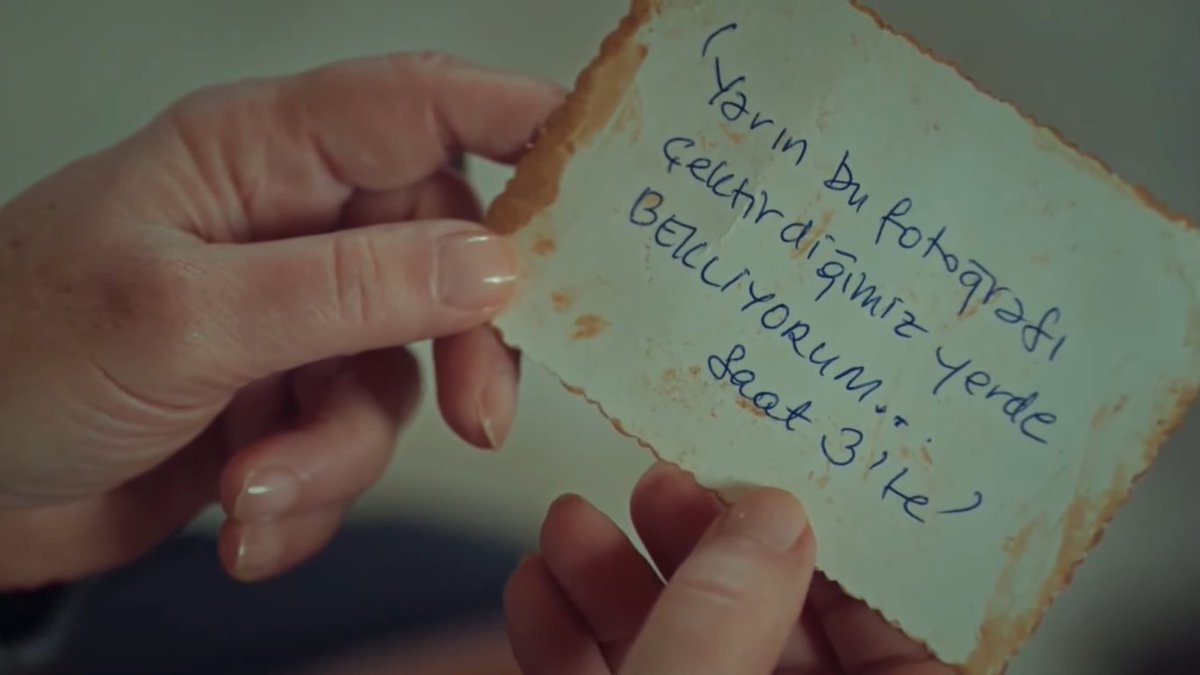 (Yarın bu fotoğrafı
çektirdiğimiz yerde
BEKLİYORUM...
Saat 3'te)